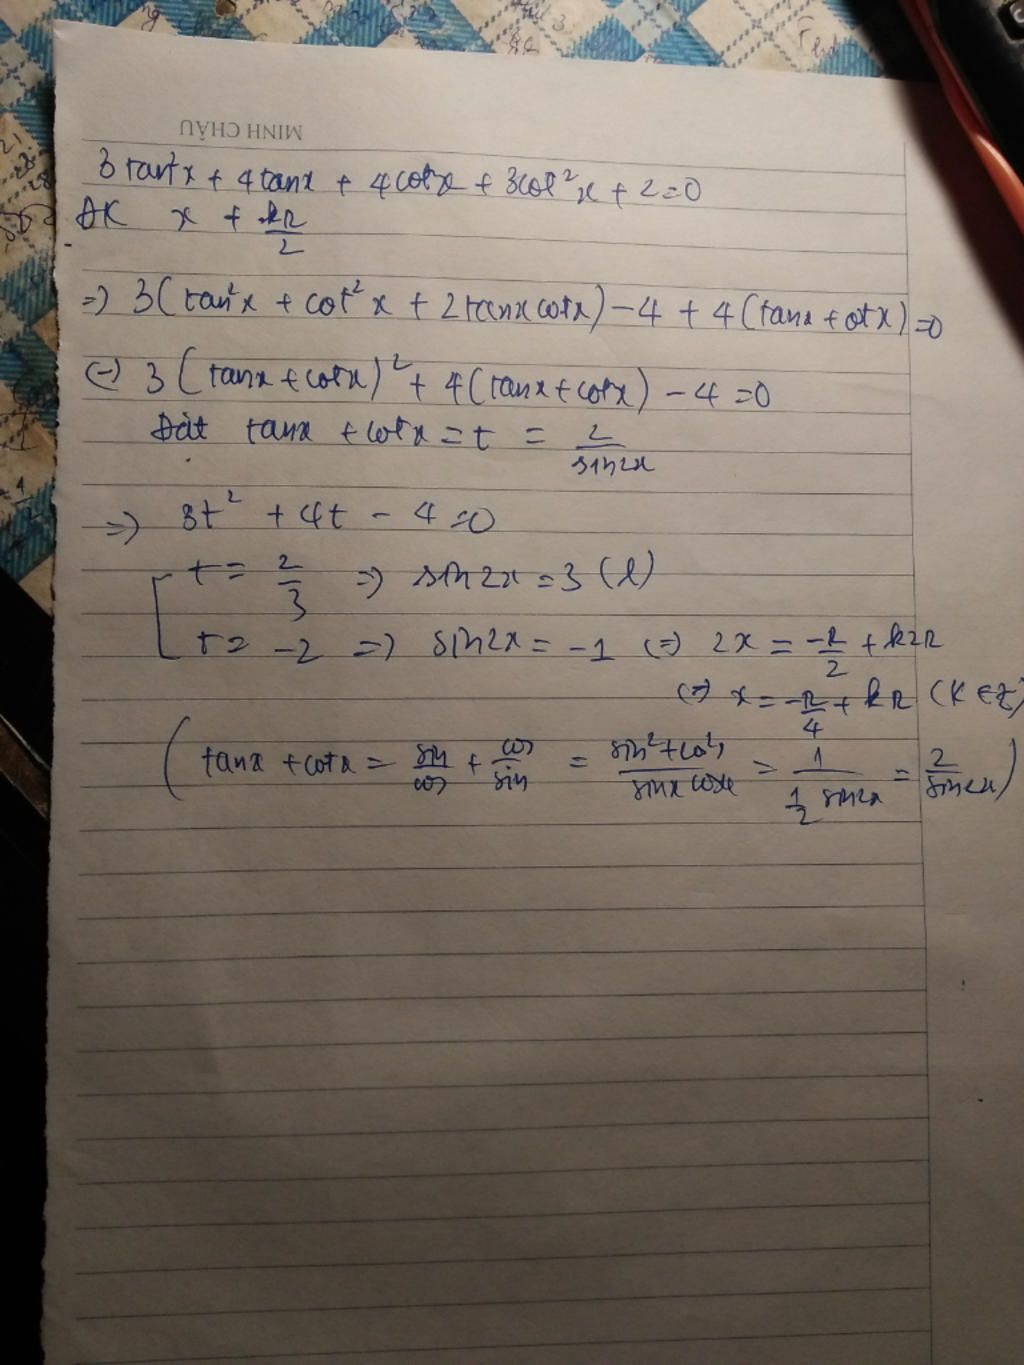 MINH CHÂU
3tan²x + 4tanx + 4cotx + 3cot²x + 2 = 0
ĐK x ≠ kπ/2
=> 3(tan²x + cot²x + 2tanxcotx) - 4 + 4(tanx + cotx) = 0
(=) 3(tanx + cotx)² + 4(tanx + cotx) - 4 = 0
Đặt tanx + cotx = t = 2/sin2x
=> 3t² + 4t - 4 = 0
[ t = 2/3 => sin2x = 3 (l)
t = -2 => sin2x = -1 (=) 2x = -π/2 + k2π
(=) x = -π/4 + kπ (k ∈ Z)
(tanx + cotx = sin/cos + cos/sin = sin² + cos²/sinxcosx = 1/½sin2x = 2/sin2x)